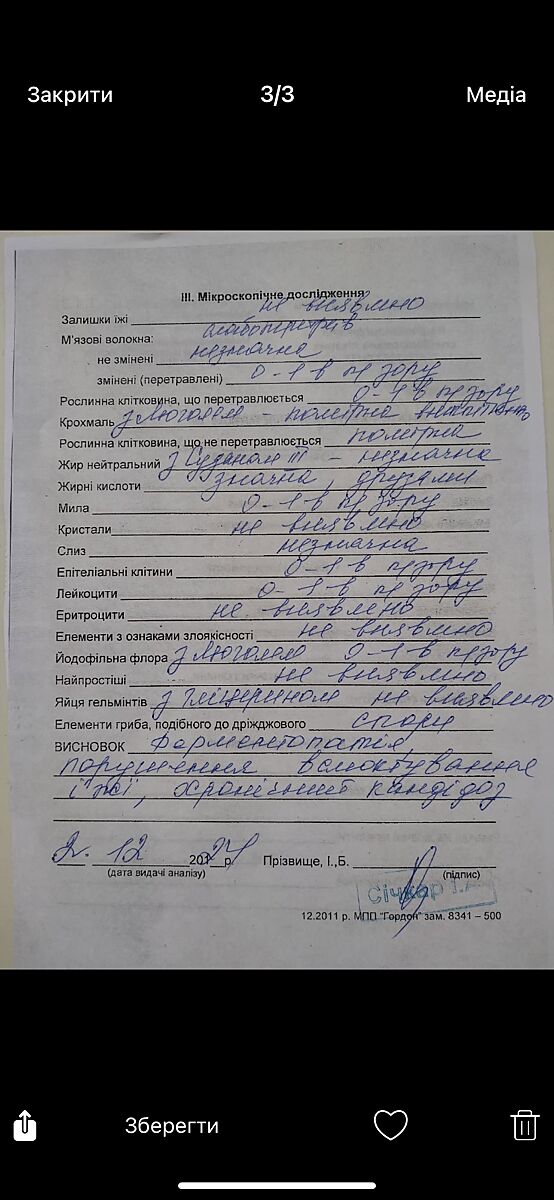 Закрити 3/3 Медіа
III. Мікроскопічне дослідження
Залишки їжі не виявлено
М'язові волокна: слабоперетрів
не змінені незначна
змінені (перетравлені) 0-1 в п/зору
Рослинна клітковина, що перетравлюється 0-1 в п/зору
Крохмаль з Люголем - помітна
Рослинна клітковина, що не перетравлюється помітна
Жир нейтральний з Суданом III - незначна
Жирні кислоти значна, друзами
Мила 0-1 в п/зору
Кристали не виявлено
Слиз незначна
Епітеліальні клітини 0-1 в п/зору
Лейкоцити 0-1 в п/зору
Еритроцити не виявлено
Елементи з ознаками злоякісності не виявлено
Йодофільна флора з Люголем 0-1 в п/зору
Найпростіші не виявлено
Яйця гельмінтів з гліцерином не виявлено
Елементи гриба, подібного до дріжджового спори
ВИСНОВОК Ферментопатія,
порушення всмоктування
їжі, хронічний кандідоз
2. 12 2024 р. Прізвище, І.,Б.
(дата видачі аналізу) (підпис)
Січкар І.
12.2011 р. МПП "Гордон" зам. 8341 – 500
Зберегти